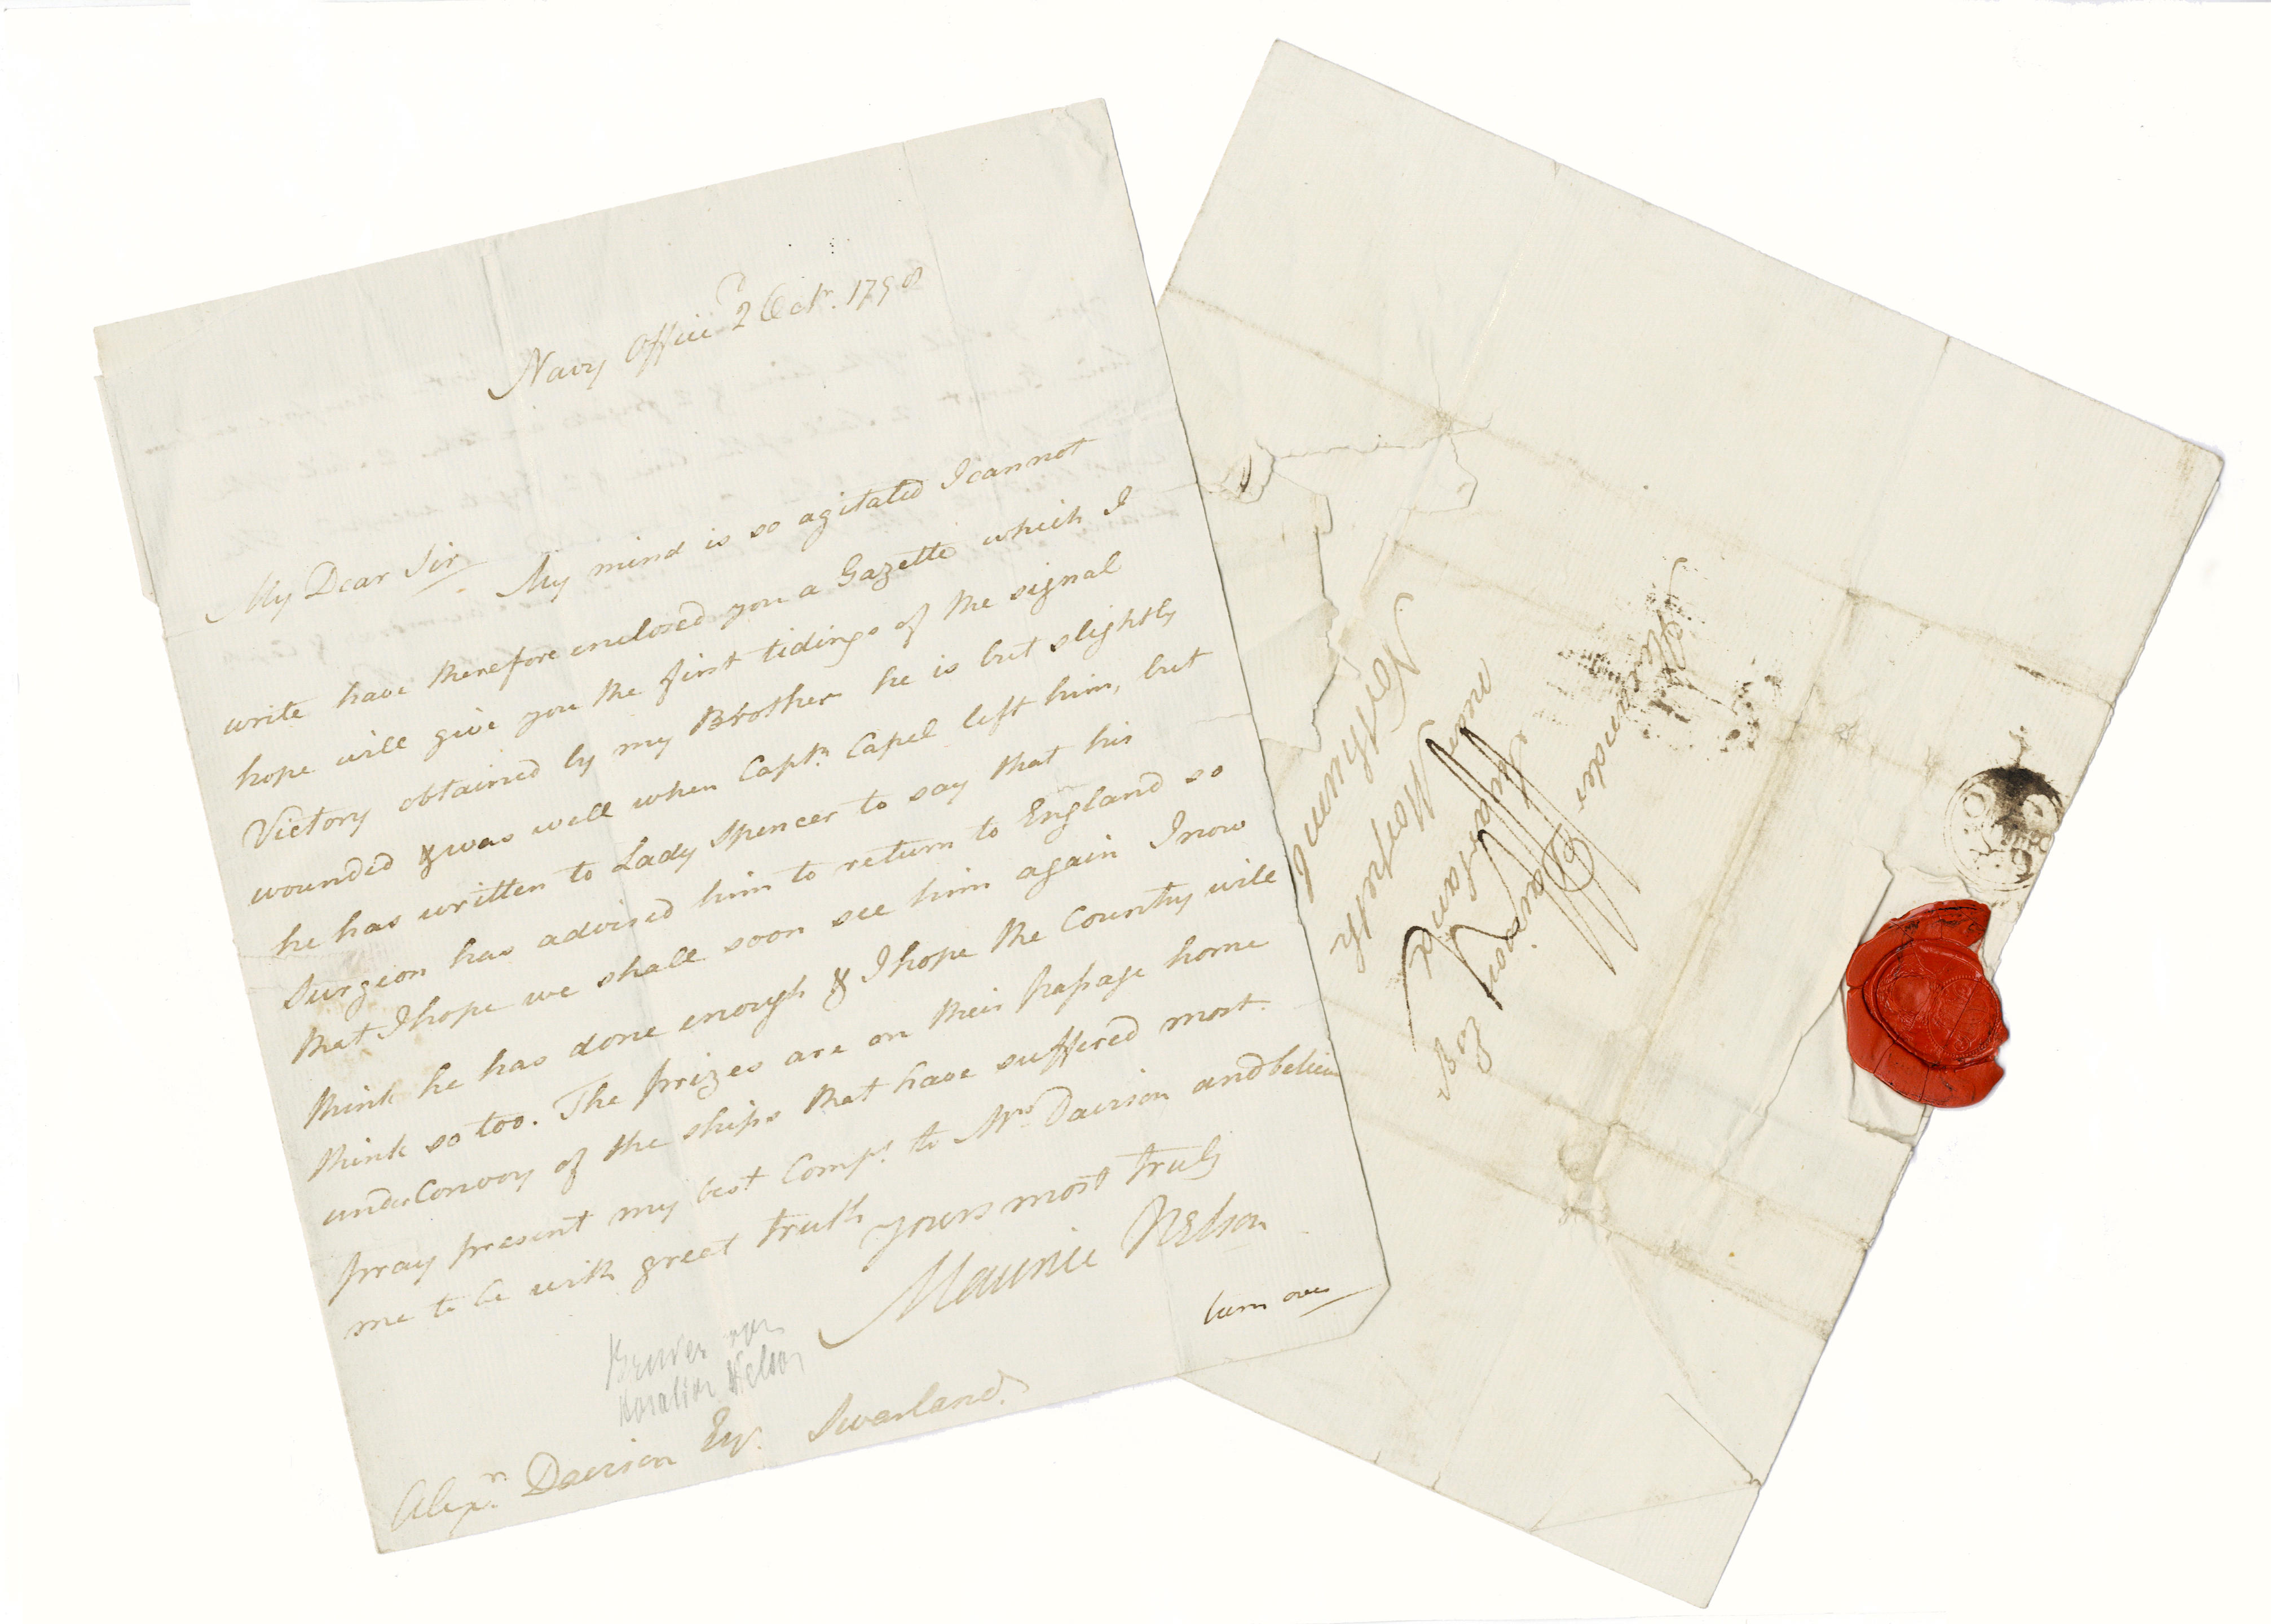 Navy Office 2 Octr. 1798
My Dear Sir
My mind is so agitated I cannot
write have therefore enclosed you a Gazette which I
hope will give you the first tidings of the signal
Victory obtained by my Brother he is but slightly
wounded & was well when Captn. Capel left him, but
he has written to Lady Spencer to say that his
Surgeon has advised him to return to England so
that I hope we shall soon see him again I now
think he has done enough & I hope the Country will
think so too. The prizes are on their passage home
under Convoy of the ships that have suffered most.
pray present my best Compts. to Mrs. Davison and believe
me to be with great truth
yours most truly
Maurice Nelson
turn over
Bruder von
Horatio Nelson
Alexr. Davison Esqr. Swarland.
Alexander Davison Esqr
Swarland
near Morpeth
Northumd